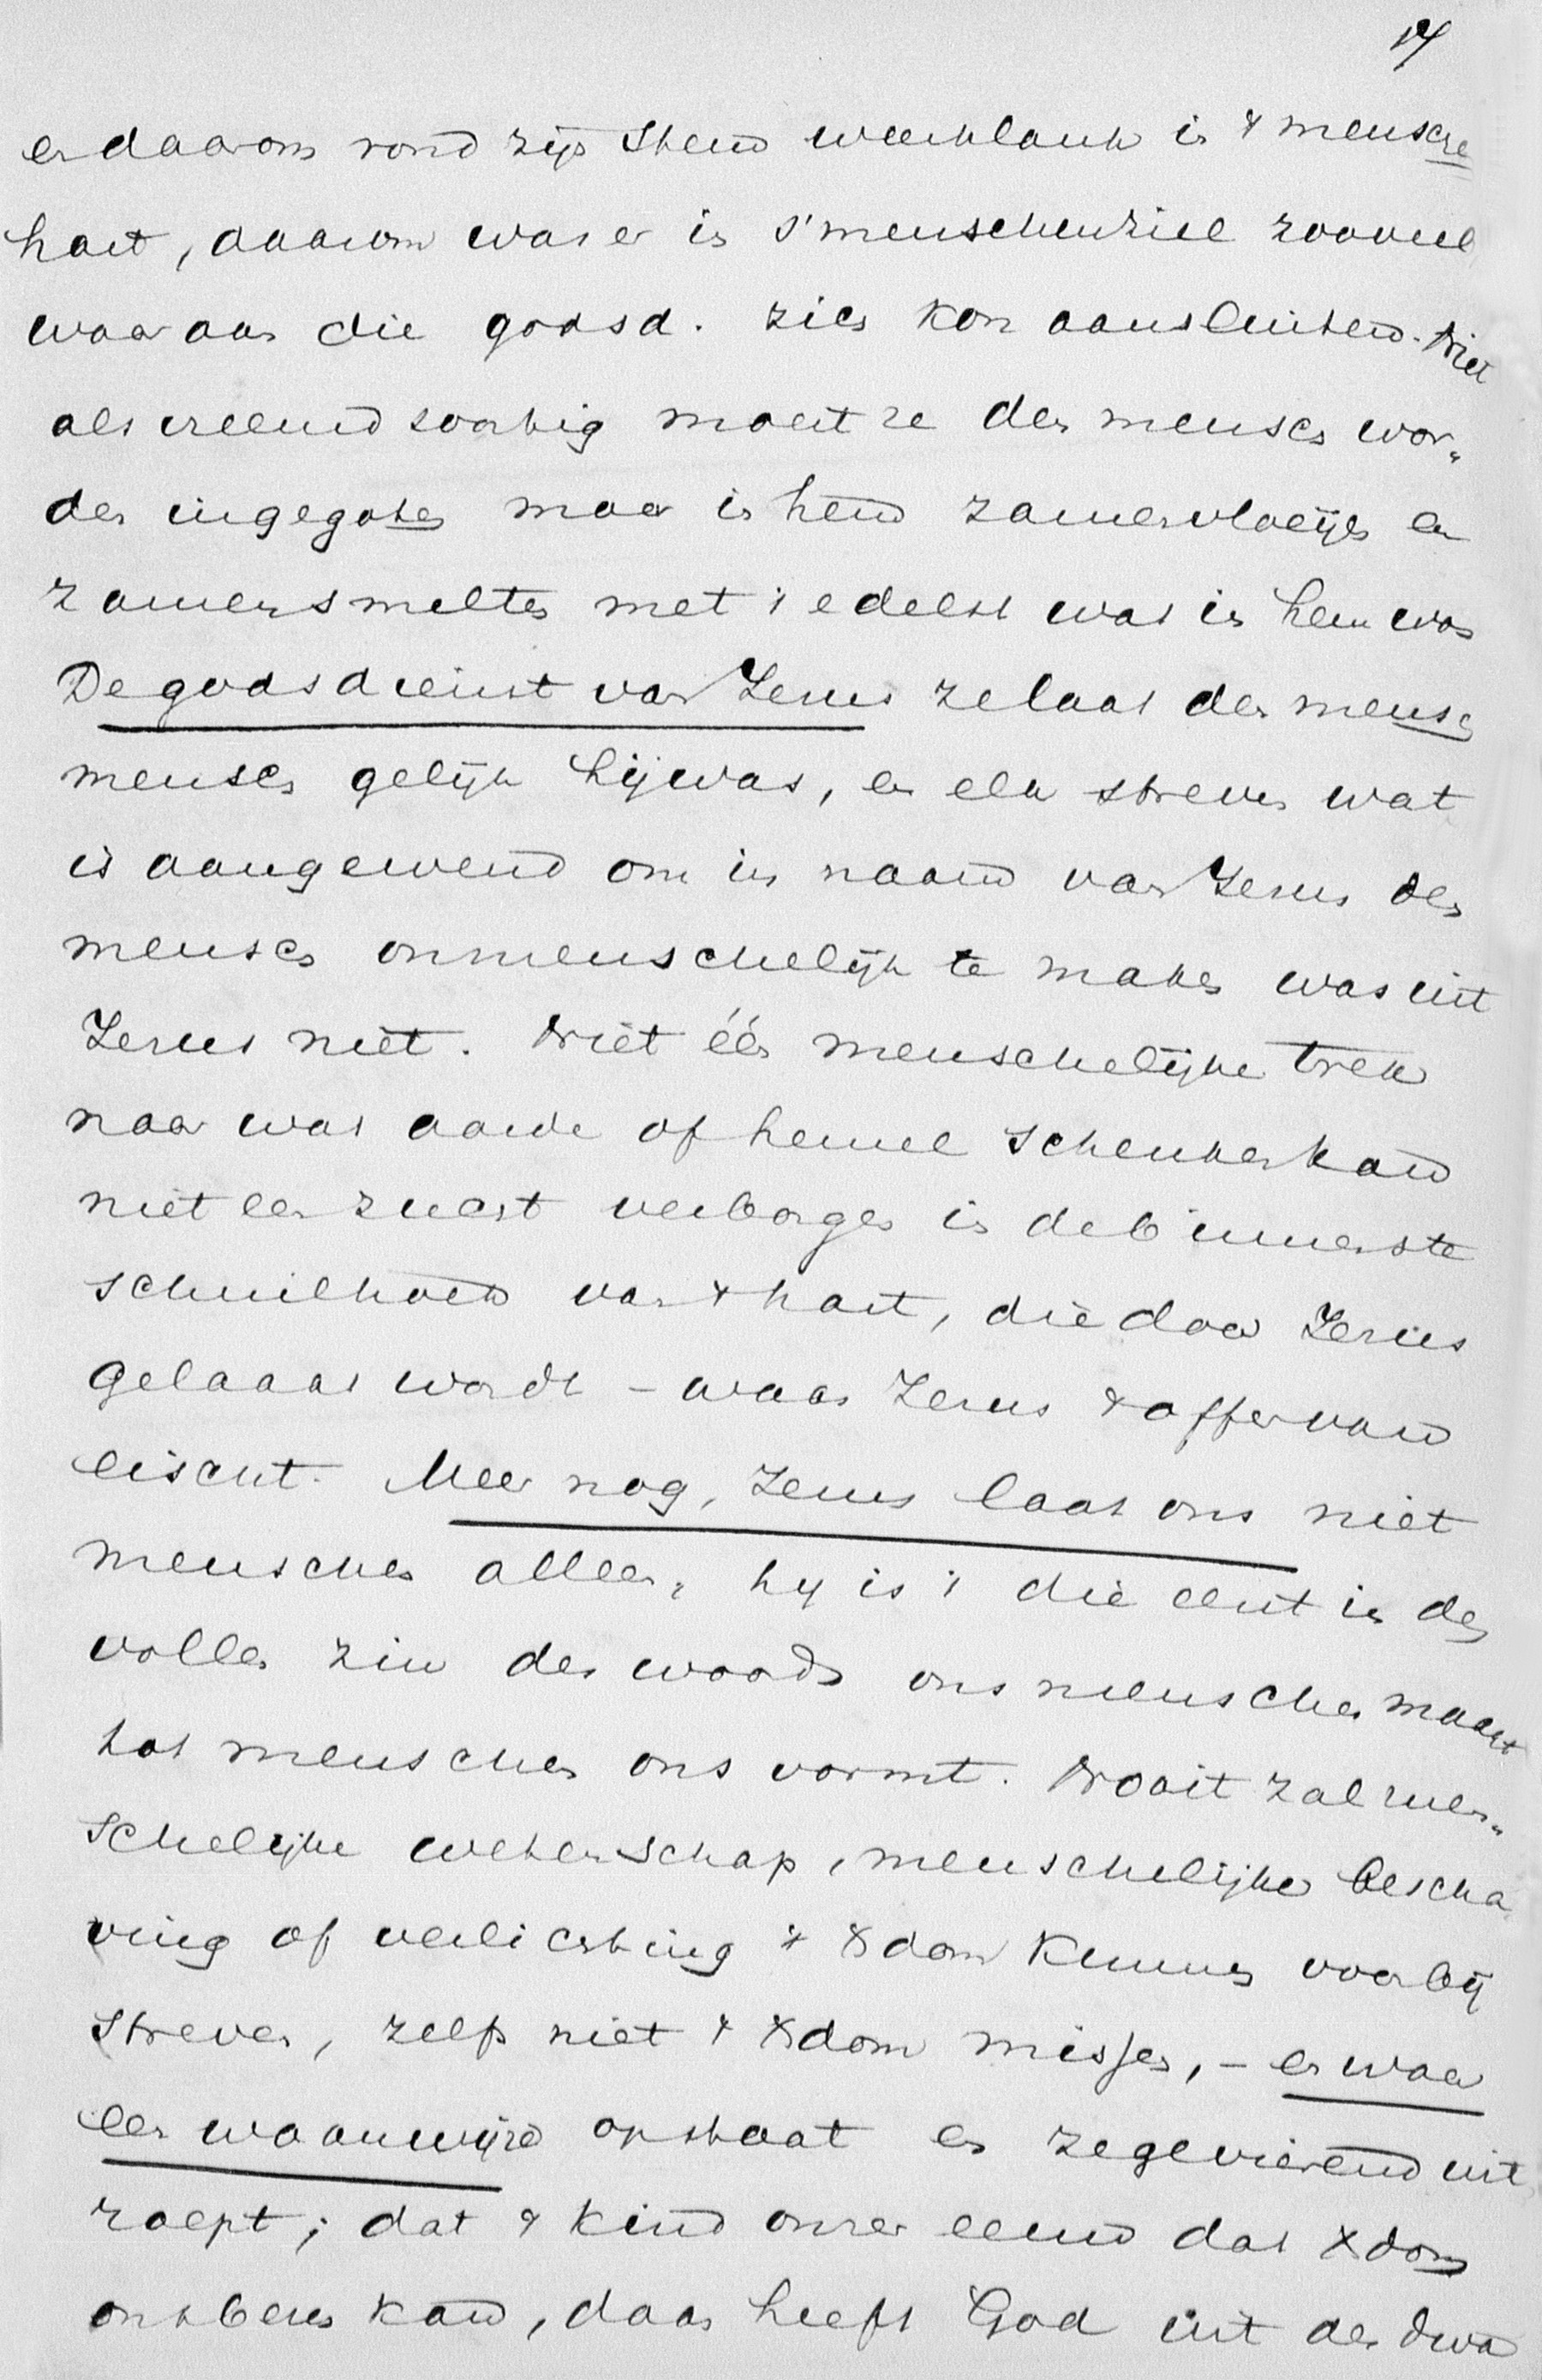 14
en daarom vond zijn stem weerklank in 't mensch
hart, daarom was er in s'menschenziel zooveel
waaraan die godsd. zich kon aansluiten. Niet
als vreemdsoortig moest ze den mensch wor„
den ingegoten maar in hem zamenvloeijen en
zamensmelten met 't edelst wat in hem was
De godsdienst van Jezus ze laat den mensch
mensch gelijk hij was, en elk streven wat
is aangewend om in naam van Jezus den
mensch onmenschelijk te maken was uit
Jezus niet. Niet één menschelijke trek
naar wat aarde of hemel schenken kan
niet een zucht verborgen in de binnenste
schuilhoek van 't hart, die door Jezus
gelaakt wordt – waar Jezus 't offer van
eischt. Meer nog, Jezus laat ons niet
menschen alleen, hij is 't die eerst in den
vollen zin des woords ons menschen maakt
tot menschen ons vormt. Nooit zal men„
schelijke wetenschap, menschelijke bescha
ving of verlichting 't Xdom kunnen voorbij
streven, zelfs niet 't Xdom missen, – en waar
een waanwijze opstaat en zegevierend uit
roept; dat 't kind onzer eeuw dat Xdom
ontberen kan, daar heeft God uit den dwa